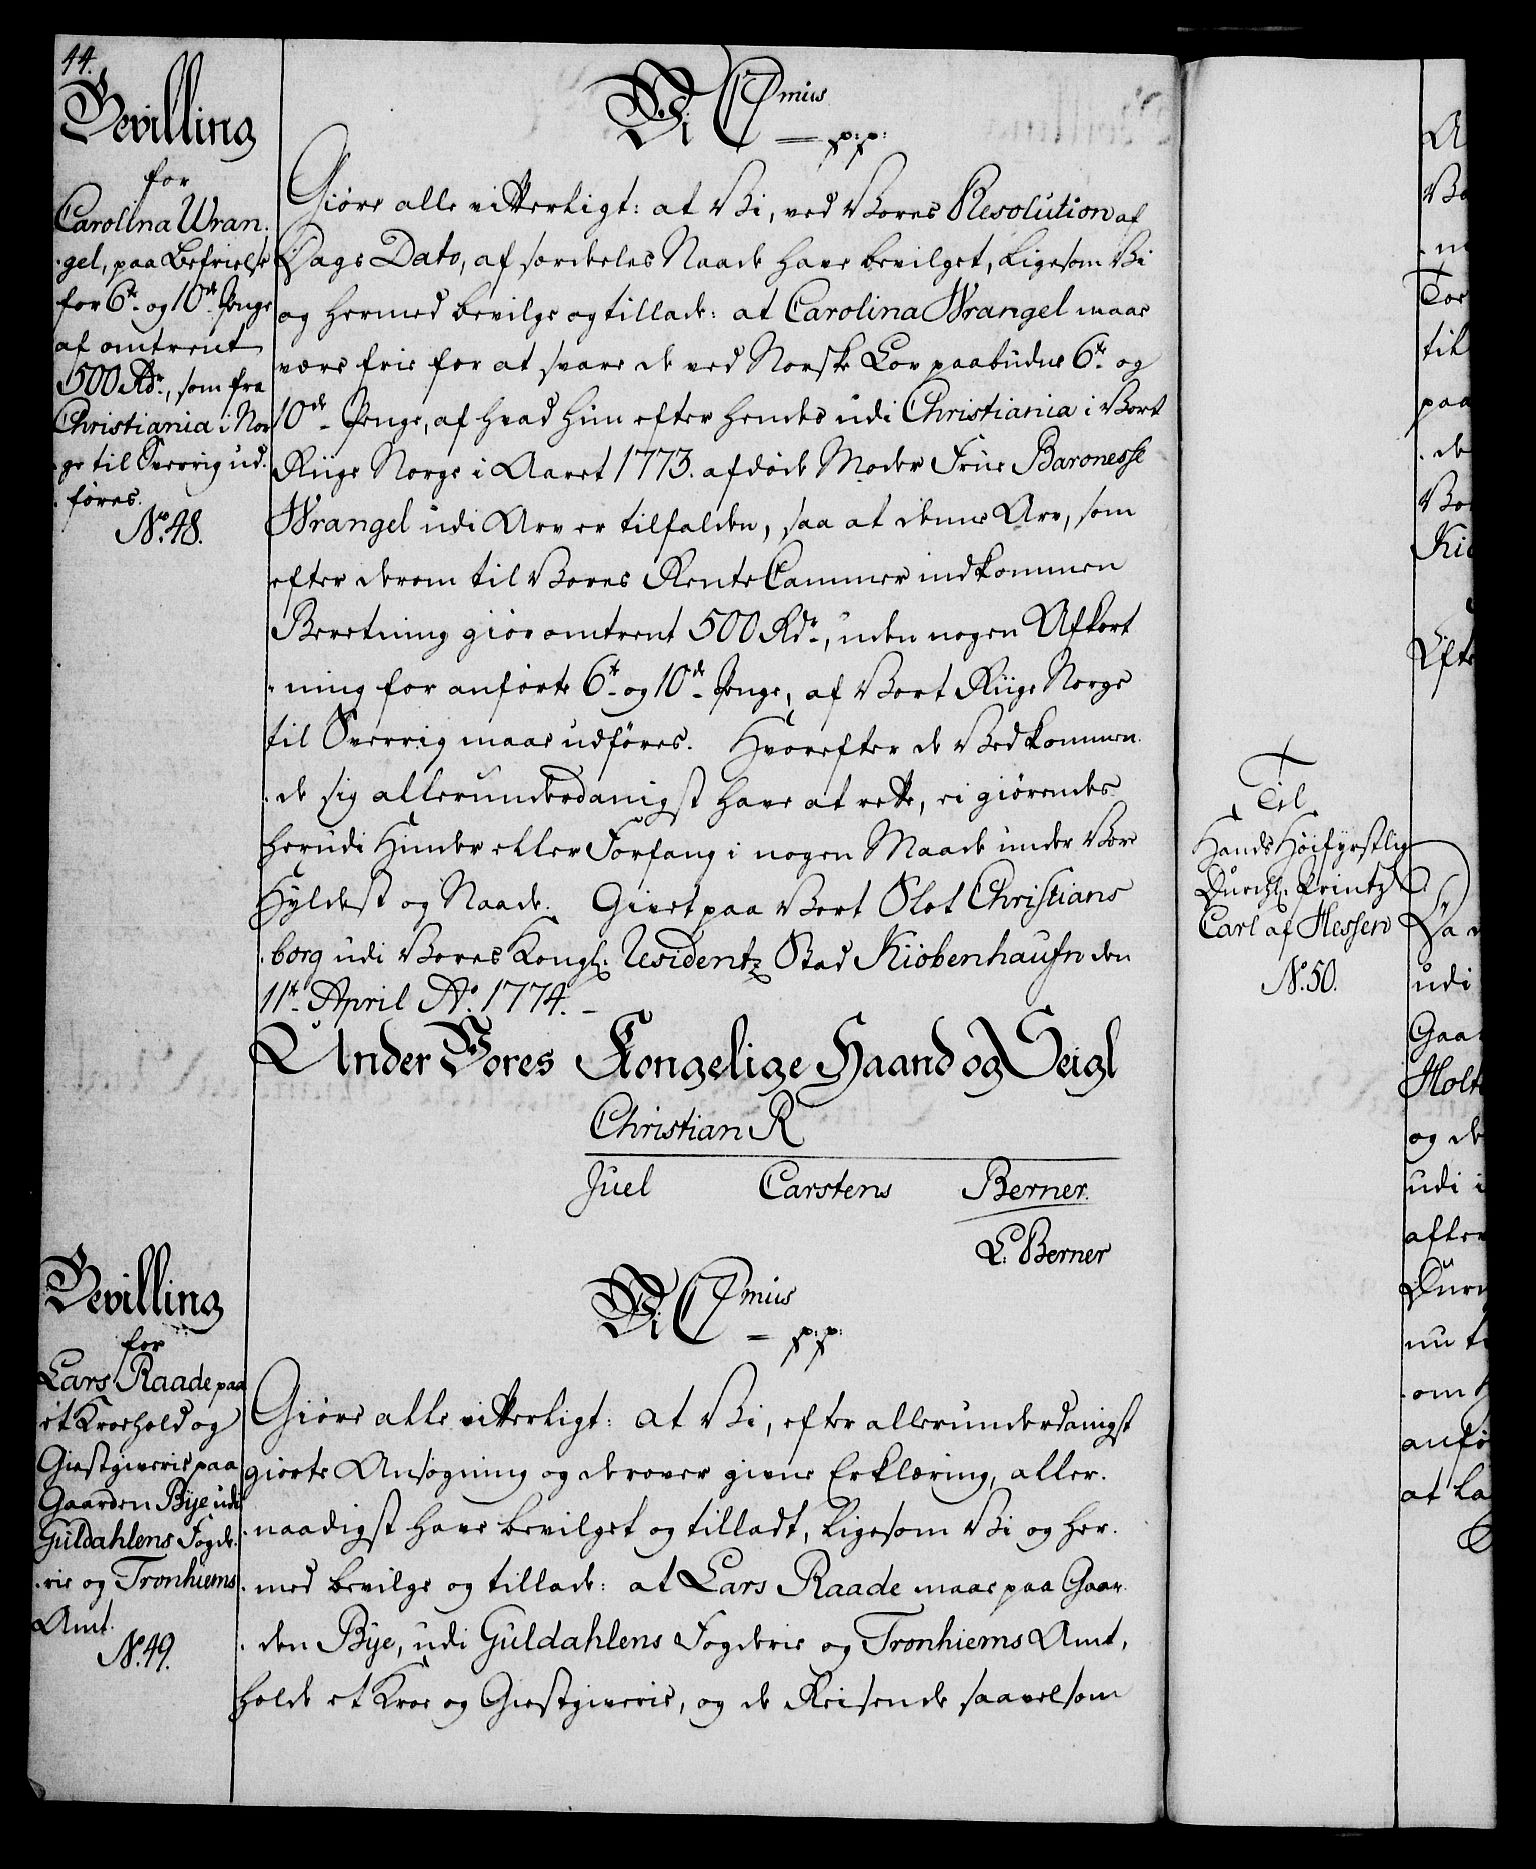 44.
Bevilling
for
Carolina Wran-
-gel, paa Befrielse
for 6te og 10de Penge
af omtrent
500 Rdr., som fra
Christiania i Nor
-ge til Sverrig ud-
-føres.
No. 48.
Vi C7mus
p: p:
Giøre alle vitterligt: at Vi, ved Vores Resolution af
Dags Dato, af særdeles Naade have bevilget, ligesom Vi
og hermed bevilge og tillade: at Carolina Wrangel maae
være frie for at svare de ved Norske Lov paabudne 6te og
10de Penge, af hvad hun efter hendes udi Christiania i Vort
Riige Norge i Aaret 1773. afdøde Moder Frue Baronesse
Wrangel udi Arv er tilfalden, saa at denne Arv, som
efter derom til Vores Rente Cammer indkommen
Beretning giør omtrent 500 Rdr., uden nogen Afkort
-ning for anførte 6te og 10de Penge, af Vort Riige Norge
til Sverrig maae udføres. Hvorefter de Vedkommen-
-de sig allerunderdanigst have at rette, ei giørendes
herudi Hinder eller Forfang i nogen Maade under Vor
Hyldest og Naade. Givet paa Vort Slot Christians
-borg udi Vores Kongl: Residentz Stad Kiöbenhaufn den
11te April Ao. 1774.
Under Vores Kongelige Haand og Seigl
Christian R
Juel Carstens Berner.
L: Berner
Bevilling
for
Lars Raade paa
et Kroehold og
Giestgiverie paa
Gaarden Bÿe udi
Guldahlens Fogde-
-rie og Tronhiems
Amt.
No. 49.
Vi C7mus
p: p:
Giøre alle vitterligt: at Vi, efter allerunderdanigst
giorte Ansøgning og derover givne Erklæring, aller-
-naadigst have bevilget og tilladt, ligesom Vi og her-
-med bevilge og tillade: at Lars Raade maae paa Gaar-
-den Bÿe, udi Guldahlens Fogderie og Tronhiems Amt,
holde et Kroe og Giestgiverie, og de Reisende saavelsom
Til
Hands Høifyrstlig
Durchl: Printz
Carl af Hessen
No. 50.
A
Vo
Tor
til
paa
de
Vor
Efte
udi
Gaa
Holt
og de
udi i
after
Dur
nu t
om
anfø
at La